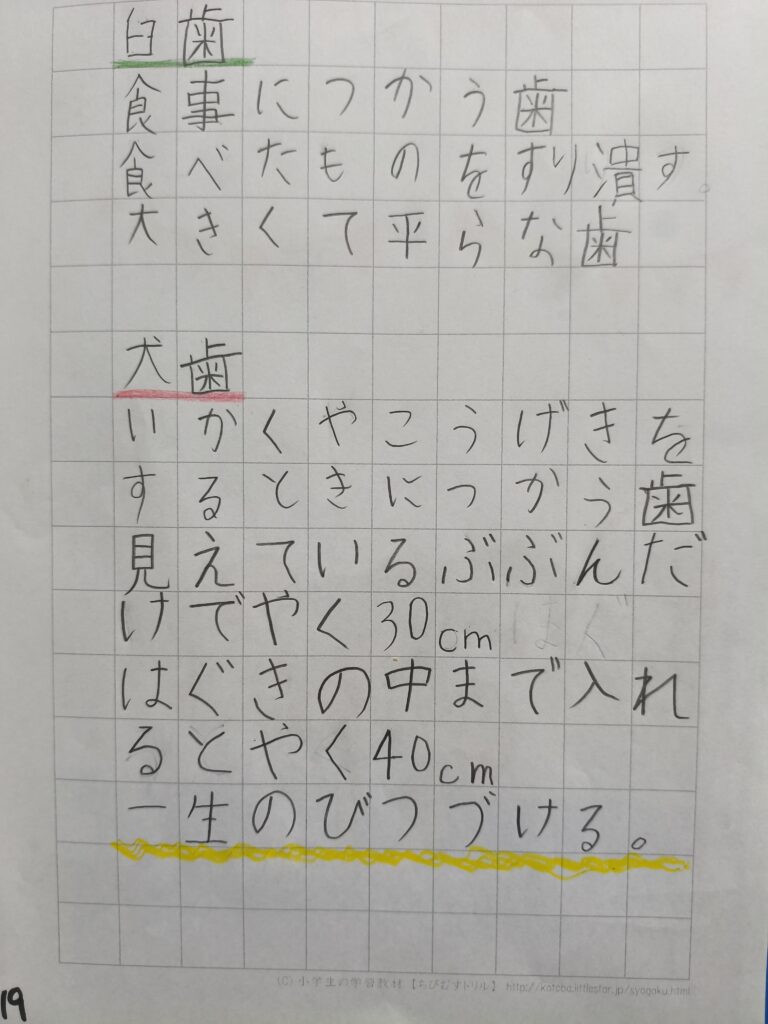 臼歯
食事につかう歯
食べたものをすり潰す。
大きくて平らな歯
犬歯
いかくやこうげきを
するときにつかう歯
見えているぶぶんだ
けでやく30cm
はぐきの中まで入れ
るとやく40cm
一生のびつづける。
(C) 小学生の学習教材【ちびむすドリル】 http://kotoba.littlestar.jp/syogaku.html
19